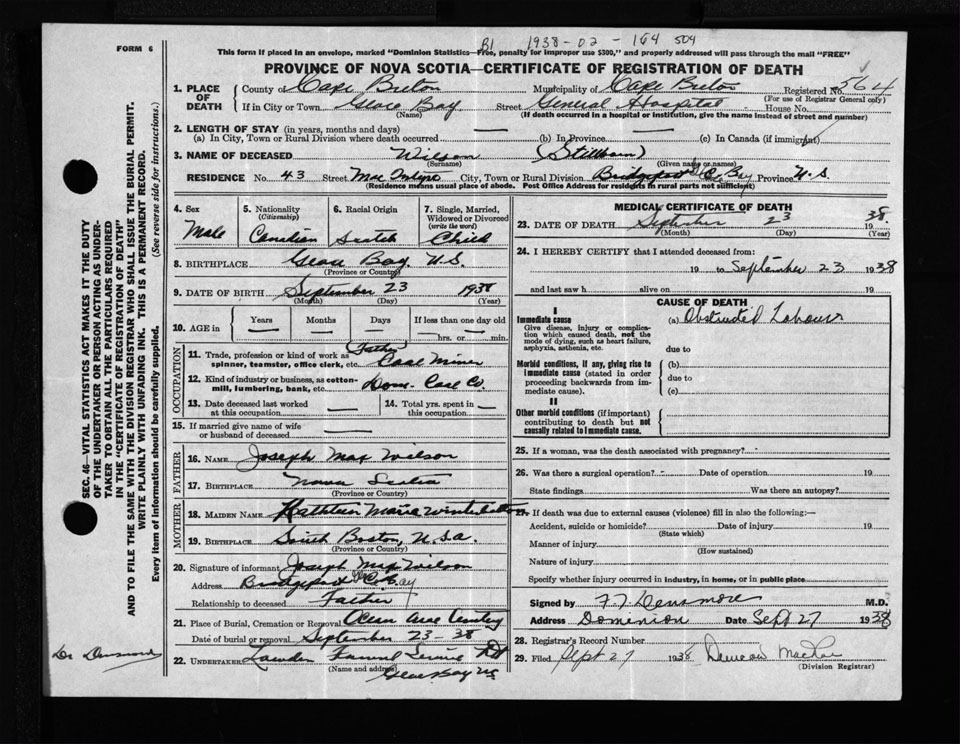 FORM 6
B1 1938-02-164 504
This form if placed in an envelope, marked "Dominion Statistics—Free, penalty for improper use $300," and properly addressed will pass through the mail "FREE"
PROVINCE OF NOVA SCOTIA—CERTIFICATE OF REGISTRATION OF DEATH
1. PLACE OF DEATH County of Cape Breton Municipality of Cape Breton Registered No. 564
(For use of Registrar General only)
If in City or Town Glace Bay Street General Hospital House No.
(Name) (If death occurred in a hospital or institution, give the name instead of street and number)
2. LENGTH OF STAY (in years, months and days)
(a) In City, Town or Rural Division where death occurred — (b) In Province — (c) In Canada (if immigrant) —
3. NAME OF DECEASED Wilson (Stillborn)
(Surname) (Given name or names)
RESIDENCE No. 43 Street City, Town or Rural Division Bridgeport G. Bay Province N.S.
(Residence means usual place of abode. Post Office Address for residents in rural parts not sufficient)
4. Sex Male
5. Nationality (Citizenship) Canadian
6. Racial Origin Scotch
7. Single, Married, Widowed or Divorced (write the word) Child
8. BIRTHPLACE Glace Bay, N.S.
(Province or Country)
9. DATE OF BIRTH September 23 1938
(Month) (Day) (Year)
10. AGE in Years — Months — Days — If less than one day old
hrs. or min.
OCCUPATION
11. Trade, profession or kind of work as spinner, teamster, office clerk, etc. (Father) Coal Miner
12. Kind of industry or business, as cotton-mill, lumbering, bank, etc. Dom. Coal Co.
13. Date deceased last worked at this occupation —
14. Total yrs. spent in this occupation —
15. If married give name of wife or husband of deceased —
FATHER
16. NAME Joseph Max Wilson
17. BIRTHPLACE Nova Scotia
(Province or Country)
MOTHER
18. MAIDEN NAME Kathleen Marie Winterbottom
19. BIRTHPLACE South Boston, U.S.A.
(Province or Country)
20. Signature of informant Joseph Max Wilson
Address Bridgeport G. Bay
Relationship to deceased Father
21. Place of Burial, Cremation or Removal Cemetery
Date of burial or removal September 23-38
22. UNDERTAKER Funeral Service
(Name and address) Glace Bay N.S.
MEDICAL CERTIFICATE OF DEATH
23. DATE OF DEATH September 23 1938
(Month) (Day) (Year)
24. I HEREBY CERTIFY that I attended deceased from:
19 to September 23 1938
and last saw h alive on 19
CAUSE OF DEATH
I
Immediate cause (a) Obstructed Labour
Give disease, injury or complication which caused death, not the mode of dying, such as heart failure, asphyxia, asthenia, etc.
due to
Morbid conditions, if any, giving rise to immediate cause (stated in order proceeding backwards from immediate cause).
(b)
due to
(c)
II
Other morbid conditions (if important) contributing to death but not causally related to immediate cause.
25. If a woman, was the death associated with pregnancy?
26. Was there a surgical operation? Date of operation 19
State findings Was there an autopsy?
27. If death was due to external causes (violence) fill in also the following:—
Accident, suicide or homicide? Date of injury 19
(State which)
Manner of injury
(How sustained)
Nature of injury
Specify whether injury occurred in industry, in home, or in public place
Signed by F T Densmore M.D.
Address Dominion Date Sept 27 1938
28. Registrar's Record Number
29. Filed Sept 27 1938 Duncan
(Division Registrar)
SEC. 46—VITAL STATISTICS ACT MAKES IT THE DUTY
OF THE UNDERTAKER OR PERSON ACTING AS UNDER-
TAKER TO OBTAIN ALL THE PARTICULARS REQUIRED
IN THE "CERTIFICATE OF REGISTRATION OF DEATH"
AND TO FILE THE SAME WITH THE DIVISION REGISTRAR WHO SHALL ISSUE THE BURIAL PERMIT.
WRITE PLAINLY WITH UNFADING INK. THIS IS A PERMANENT RECORD.
Every item of information should be carefully supplied. (See reverse side for instructions.)
Dr Densmore